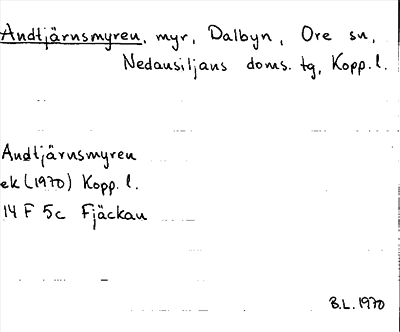 Andtjärnsmyren, myr, Dalbyn, Ore sn,
Nedansiljans doms. tg, Kopp. l.
Andtjärnsmyren
ek (1970) Kopp. l.
14 F 5c Fjäckan
B.L. 1970